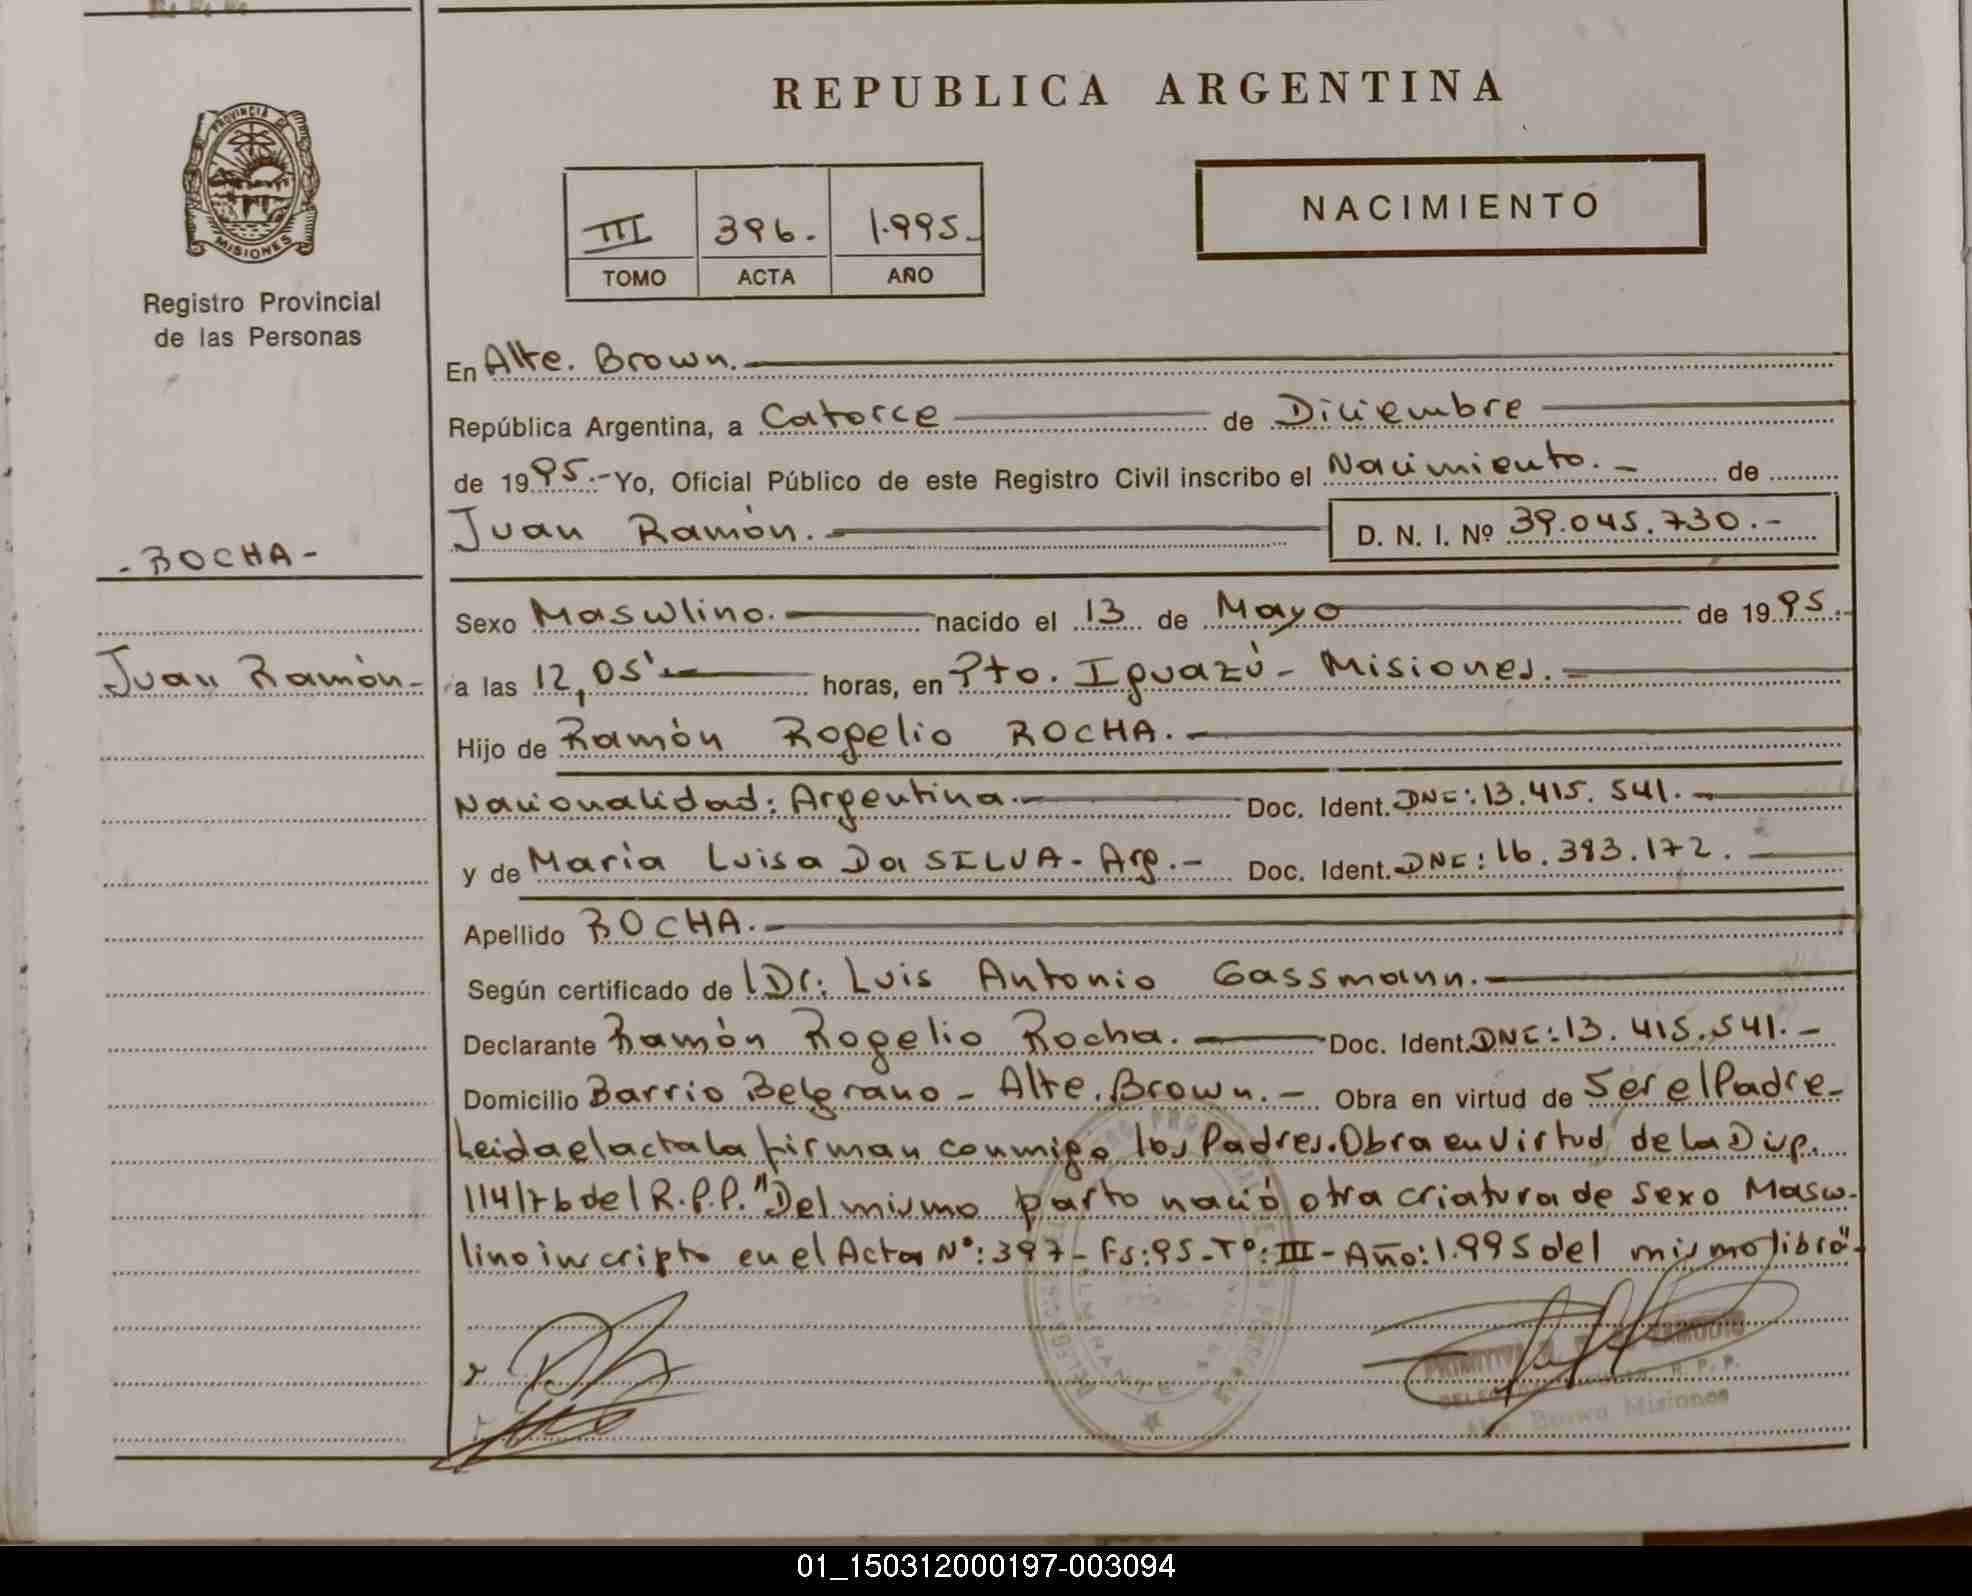 REPUBLICA ARGENTINA
PROVINCIA DE
MISIONES
Registro Provincial
de las Personas
III 396.- 1.995.-
TOMO ACTA AÑO
NACIMIENTO
En Alte. Brown.
República Argentina, a Catorce de Diciembre
de 1995.- Yo, Oficial Público de este Registro Civil inscribo el Nacimiento.- de
Juan Ramón. D. N. I. Nº 39.045.730.-
-ROCHA-
Sexo Masculino. nacido el 13 de Mayo de 1995.-
Juan Ramón- a las 12,05'- horas, en Pto. Iguazú - Misiones.
Hijo de Ramón Rogelio ROCHA.
Nacionalidad: Argentina. Doc. Ident. DNI: 13.415.541.-
y de María Luisa Da SILVA - Arg.- Doc. Ident. DNI: 16.383.172.-
Apellido ROCHA.-
Según certificado de Dr: Luis Antonio Gassmann.
Declarante Ramón Rogelio Rocha. Doc. Ident. DNI: 13.415.541.-
Domicilio Barrio Belgrano - Alte. Brown.- Obra en virtud de Ser el Padre-
Leida el acta la firman conmigo los Padres. Obra en virtud de la Disp.
114/76 del R.P.P. "Del mismo parto nació otra criatura de sexo Mascu-
lino inscripto en el Acta N°: 397 - Fs: 95 - T°: III - Año: 1.995 del mismo libro"-
ZAMUDIO
R. P. P.
Brown Misiones
01_150312000197-003094